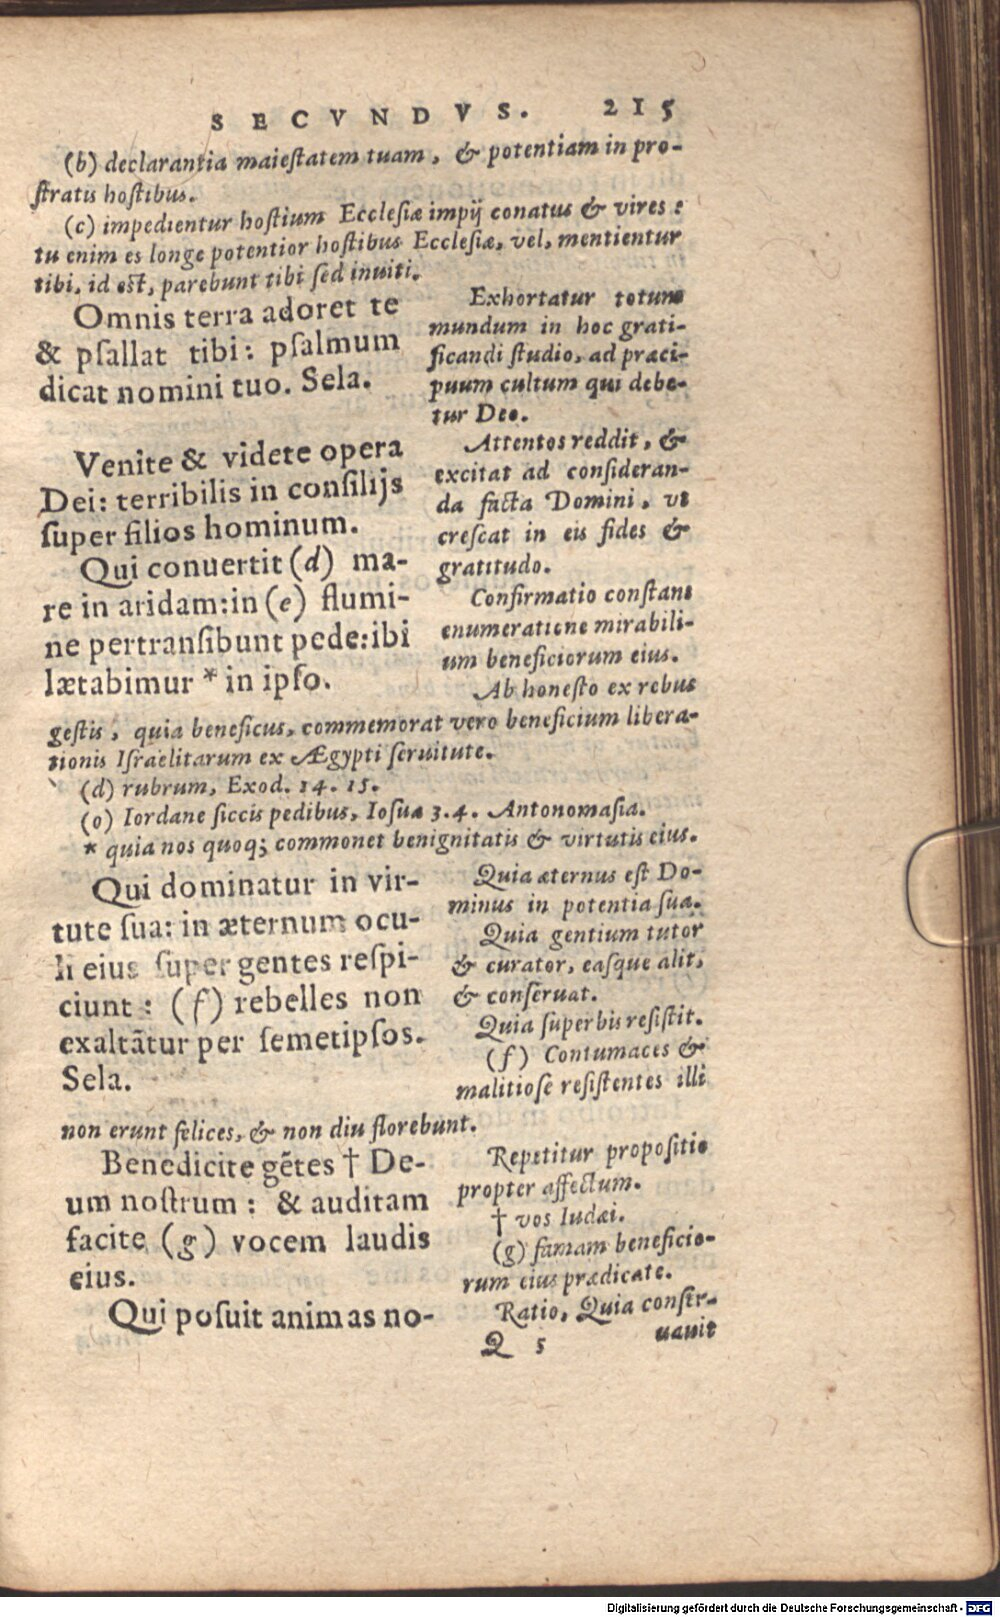 SECVNDVS. 215
(b) declarantia maiestatem tuam, & potentiam in pro-
stratis hostibus.
(c) impedientur hostium Ecclesiæ impij conatus & vires:
tu enim es longe potentior hostibus Ecclesiæ, vel, mentientur
tibi, id est, parebunt tibi sed inuiti.
Omnis terra adoret te
& psallat tibi: psalmum
dicat nomini tuo. Sela.
Exhortatur totum
mundum in hoc grati-
ficandi studio, ad præci-
puum cultum qui debe-
tur Deo.
Venite & videte opera
Dei: terribilis in consilijs
super filios hominum.
Attentos reddit, &
excitat ad consideran-
da facta Domini, vt
crescat in eis fides &
gratitudo.
Qui conuertit (d) ma-
re in aridam: in (e) flumi-
ne pertransibunt pede: ibi
lætabimur * in ipso.
Confirmatio constans
enumeratione mirabili-
um beneficiorum eius.
Ab honesto ex rebus
gestis, quia beneficus, commemorat vero beneficium libera-
tionis Israelitarum ex Ægypti seruitute.
(d) rubrum, Exod. 14. 15.
(o) Iordane siccis pedibus, Iosua 3. 4. Antonomasia.
* quia nos quoq; commonet benignitatis & virtutis eius.
Qui dominatur in vir-
tute sua: in æternum ocu-
li eius super gentes respi-
ciunt: (f) rebelles non
exaltātur per semetipsos.
Sela.
Quia æternus est Do-
minus in potentia sua.
Quia gentium tutor
& curator, easque alit,
& conseruat.
Quia superbis resistit.
(f) Contumaces &
malitiose resistentes illi
non erunt felices, & non diu florebunt.
Benedicite gētes † De-
um nostrum: & auditam
facite (g) vocem laudis
eius.
Qui posuit animas no-
Repetitur propositio
propter affectum.
† vos Iudæi.
(g) famam beneficio-
rum eius prædicate.
Ratio, Quia conser-
uauit
Q 5
Digitalisierung gefördert durch die Deutsche Forschungsgemeinschaft - DFG